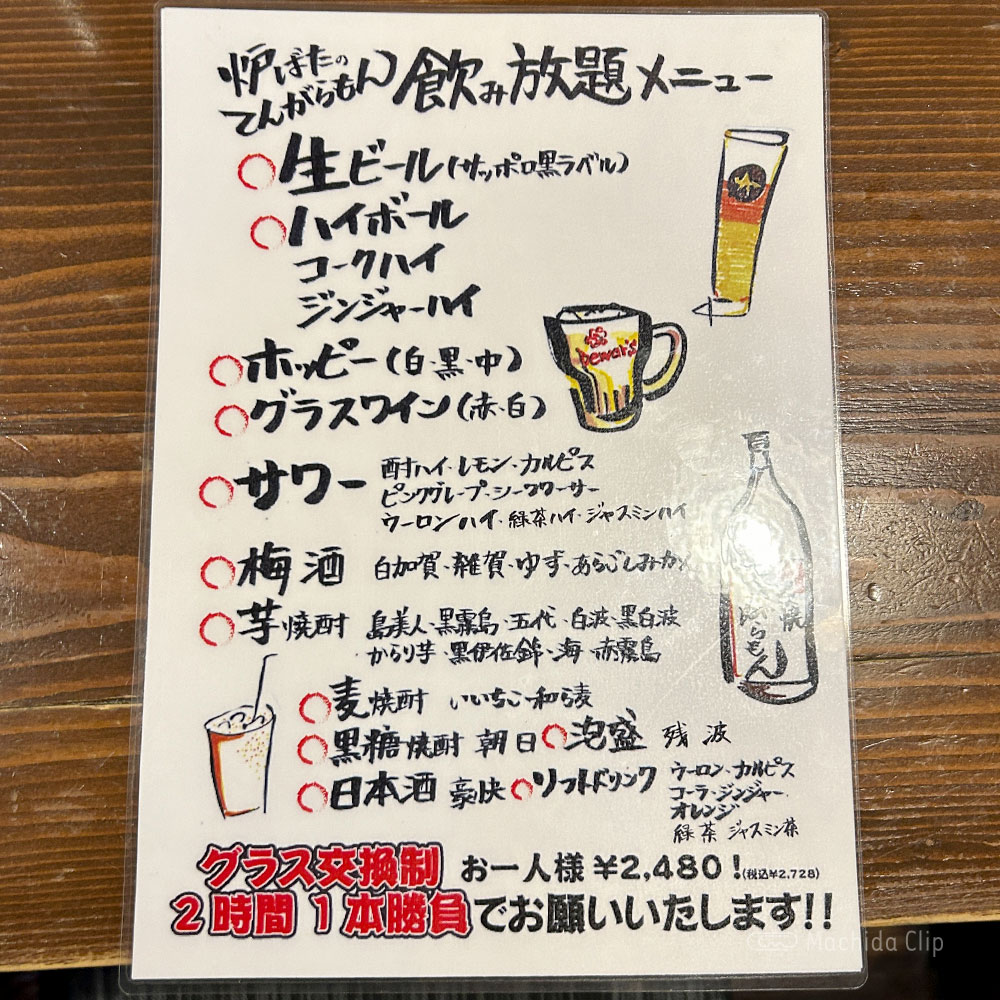 炉ばたの
てんがらもん 飲み放題メニュー
生ビール(サッポロ黒ラベル)
ハイボール
コークハイ
ジンジャーハイ
ホッピー(白・黒・中)
Dewar's
グラスワイン(赤・白)
サワー 酎ハイ・レモン・カルピス
ピンクグレープ・シークワーサー
ウーロンハイ・緑茶ハイ・ジャスミンハイ
梅酒 白加賀・雑賀・ゆず・あらごしみかん
芋焼酎 島美人・黒霧島・五代・白波・黒白波
からり芋・黒伊佐錦・海・赤霧島
麦焼酎 いいちこ・和ら麦
黒糖焼酎 朝日 泡盛 残波
日本酒 豪快 ソフトドリンク ウーロン・カルピス
コーラ・ジンジャー
オレンジ
緑茶 ジャスミン茶
グラス交換制 お一人様¥2,480!(税込¥2,728)
2時間1本勝負でお願いいたします!!
Machida Clip